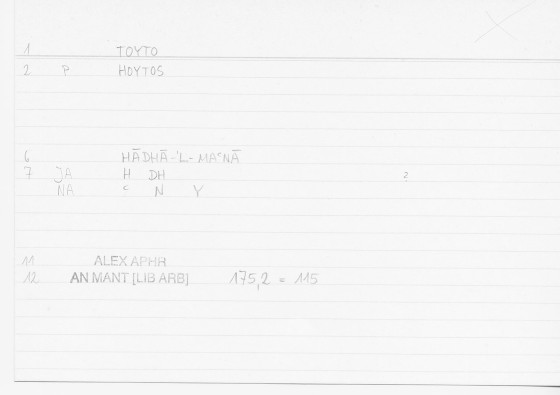 1 TOYTO
2 P HOYTOS
6 HĀDHĀ-'L-MAʿNĀ
7 JA H DH 2
NA ʿ N Y
11 ALEX APHR
12 AN MANT [LIB ARB] 175,2 = 115